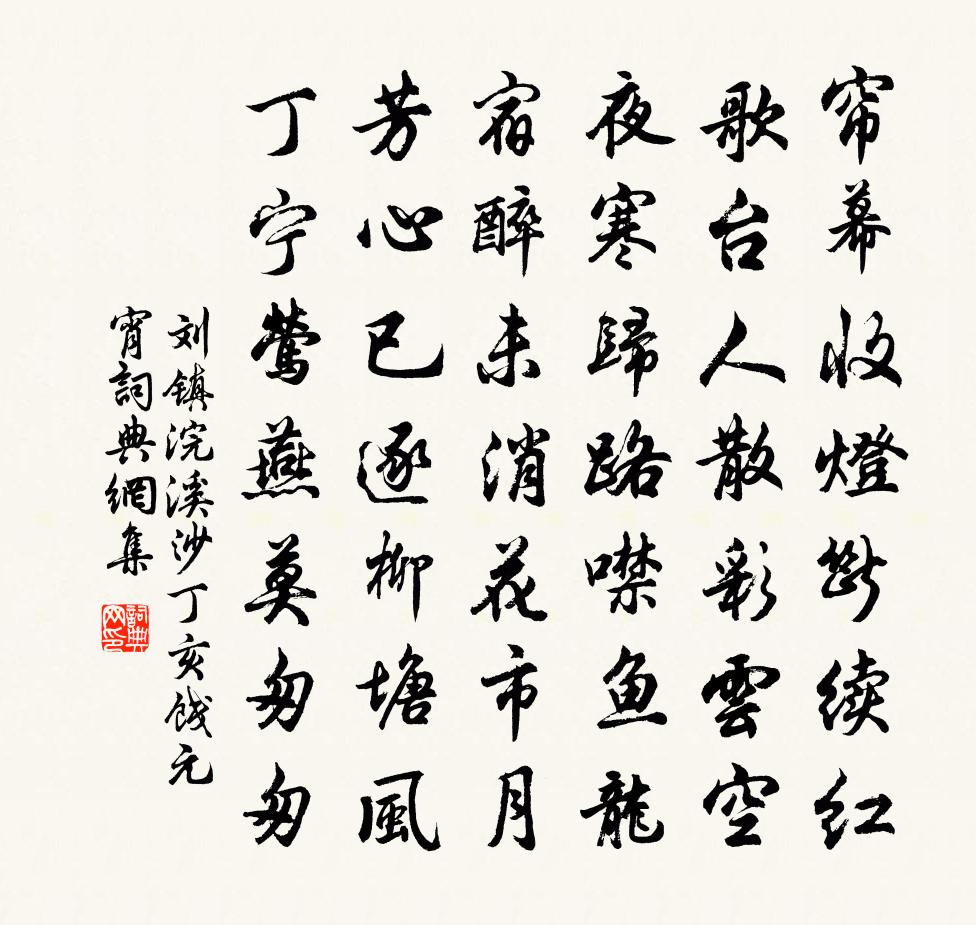 帘幕收燈断续红
歌台人散彩雲空
夜寒歸路噤鱼龍
宿醉未消花市月
芳心已逐柳塘風
丁宁莺燕莫匆匆
刘镇浣溪沙丁亥饯元
宵詞典網集
詞典网印